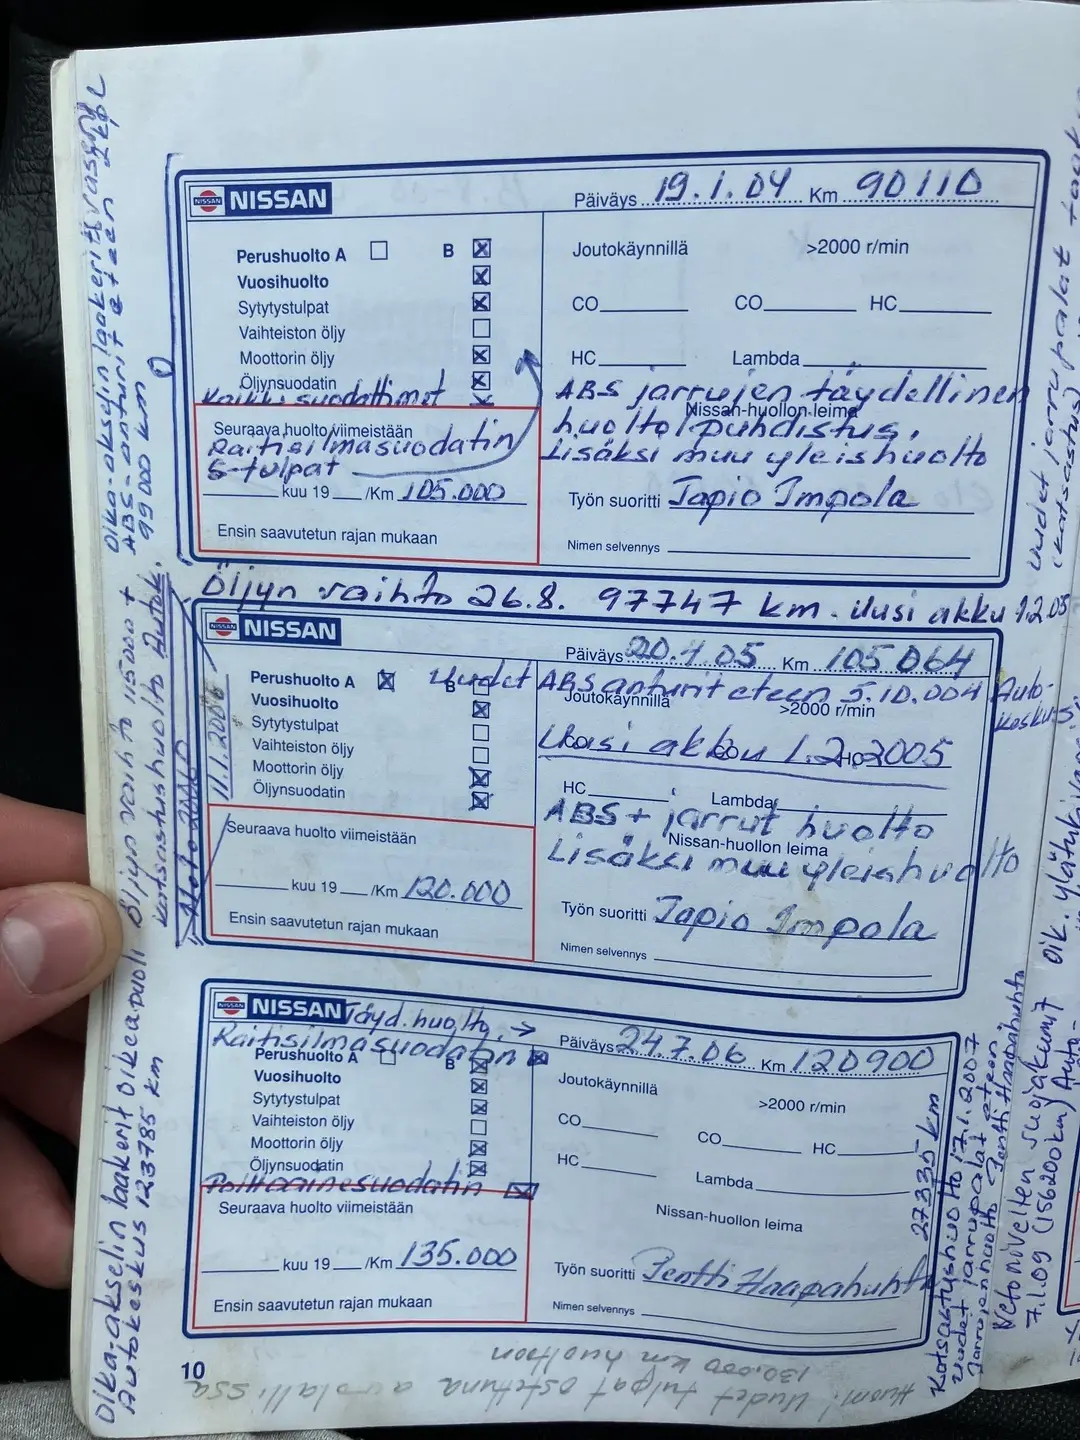 NISSAN NISSAN
Päiväys 19.1.04 Km 90110
Perushuolto A B
Vuosihuolto
Sytytystulpat
Vaihteiston öljy
Moottorin öljy
Öljynsuodatin
Kaikki suodattimet
Seuraava huolto viimeistään
Raitisilmasuodatin
S-tulpat
kuu 19 /Km 105.000
Ensin saavutetun rajan mukaan
Joutokäynnillä >2000 r/min
CO CO HC
HC Lambda
ABS jarrujen täydellinen
Nissan-huollon leima
huolto/puhdistus.
Lisäksi muu yleishuolto
Työn suoritti Tapio Impola
Nimen selvennys
Öljyn vaihto 26.8. 97747 km. Uusi akku 1.2.05
NISSAN NISSAN
Päiväys 20.7.05 Km 105064
Perushuolto A B
Vuosihuolto
Sytytystulpat
Vaihteiston öljy
Moottorin öljy
Öljynsuodatin
11.1.2006
Seuraava huolto viimeistään
kuu 19 /Km 120.000
Ensin saavutetun rajan mukaan
Uudet ABS anturit eteen 5.10.004 Auto-
keskus
Joutokäynnillä >2000 r/min
Uusi akku 1.2.2005
HC Lambda
ABS + jarrut huolto
Nissan-huollon leima
Lisäksi muu yleishuolto
Työn suoritti Tapio Impola
Nimen selvennys
NISSAN NISSAN Täyd. huolto
Raitisilmasuodatin
Päiväys 24.7.06 Km 120900
Perushuolto A B
Vuosihuolto
Sytytystulpat
Vaihteiston öljy
Moottorin öljy
Öljynsuodatin
Polttoainesuodatin
Seuraava huolto viimeistään
kuu 19 /Km 135.000
Ensin saavutetun rajan mukaan
Joutokäynnillä >2000 r/min
CO CO HC
HC Lambda
Nissan-huollon leima
Työn suoritti Pentti Haapahuhta
Nimen selvennys
10
Huom! Uudet tulpat ostettuna autolallissa
130.000 km huoltoon
Oika-akselin laakerit vasen
ABS-anturit eteen 2kpl
99000 km
Öljyn vaihto 115000 +
katsastushuolto Autok.
Oika-akselin laakerit oikea puoli
Autokeskus 123785 km
27335 km
Katsastushuolto 17.1.2007
Uudet jarrupalat eteen
Jarrujenhuolto Pentti Haapahuhta
Vetonivelten suojakumit oik.
7.1.09 (156200km) Auto-
Uudet jarrupalat taakse
(katsastus)